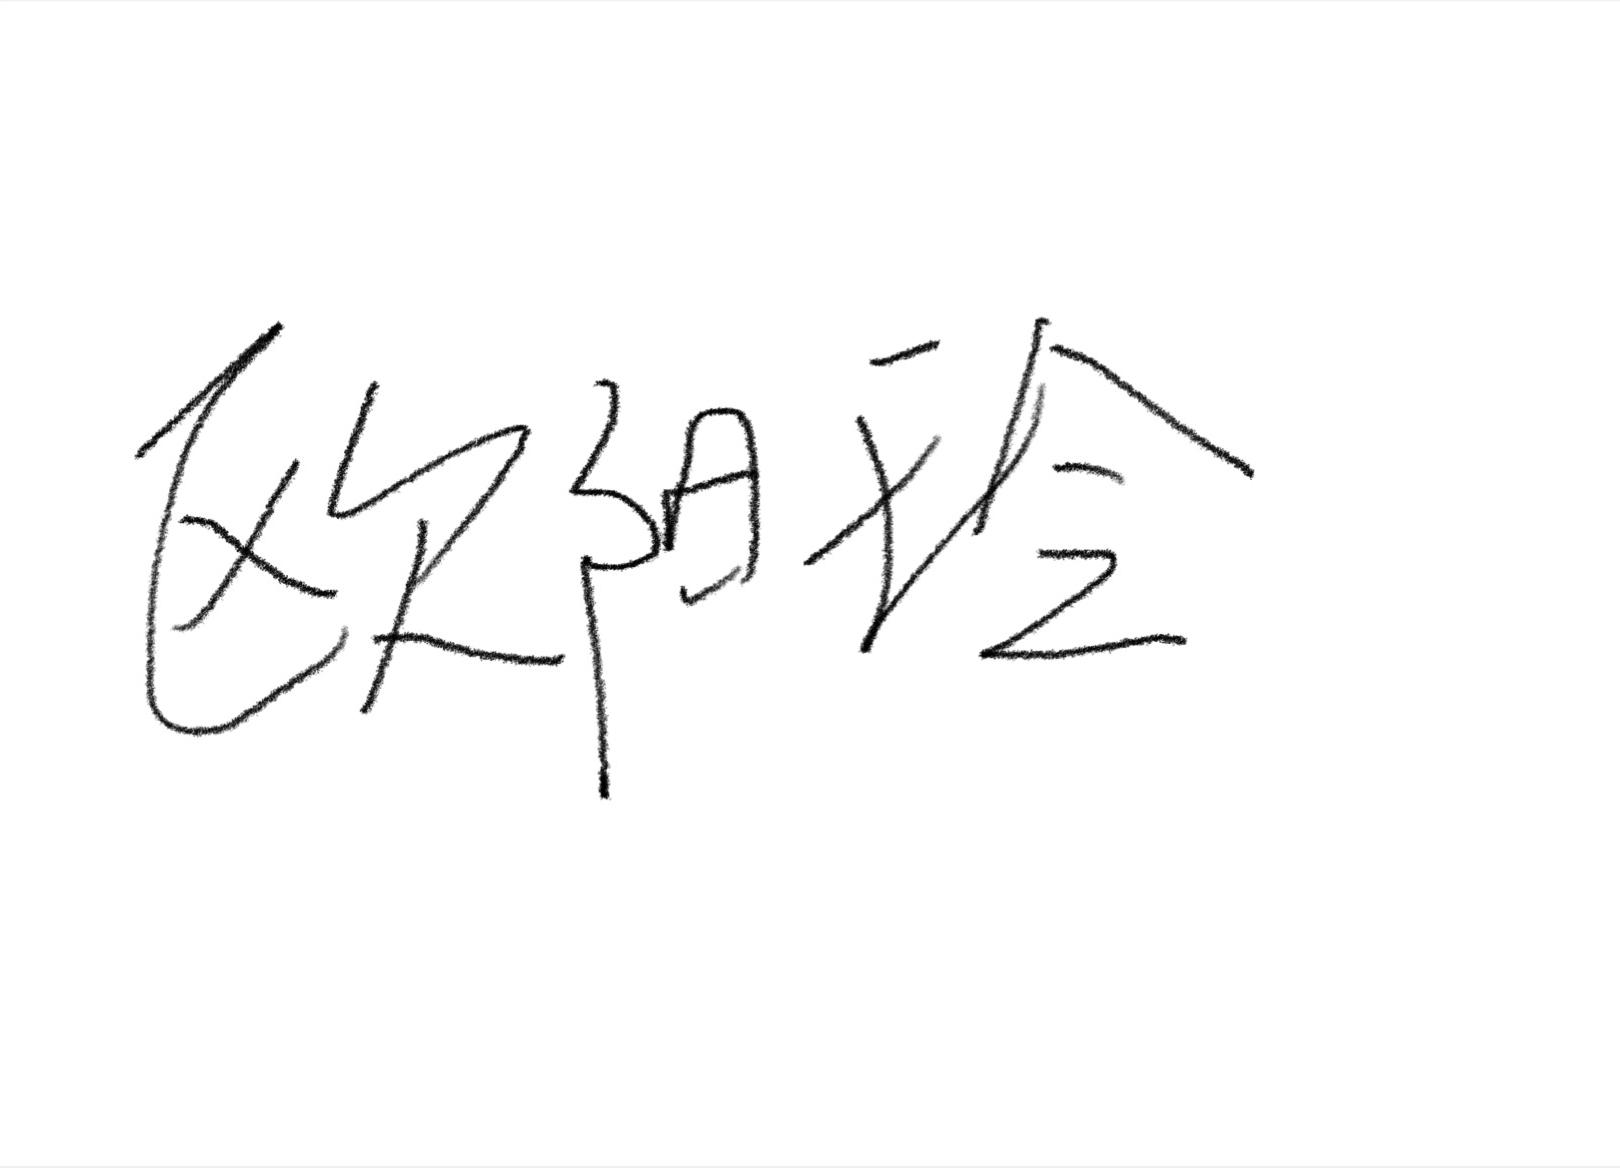 欧阳玲